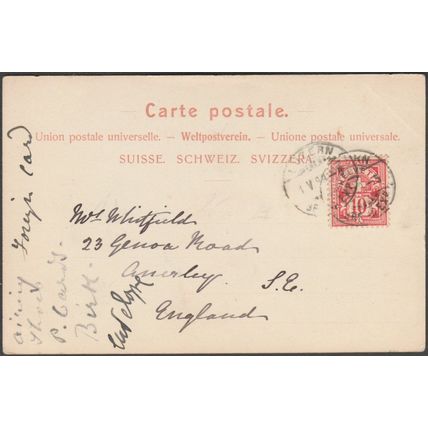 Carte postale.
Union postale universelle. — Weltpostverein. — Unione postale universale.
SUISSE. SCHWEIZ. SVIZZERA.
LUZERN
10
Mrs Whitfield
23 Genoa Road
Anerley. S.E.
England
Foreign Card
P. Cards.